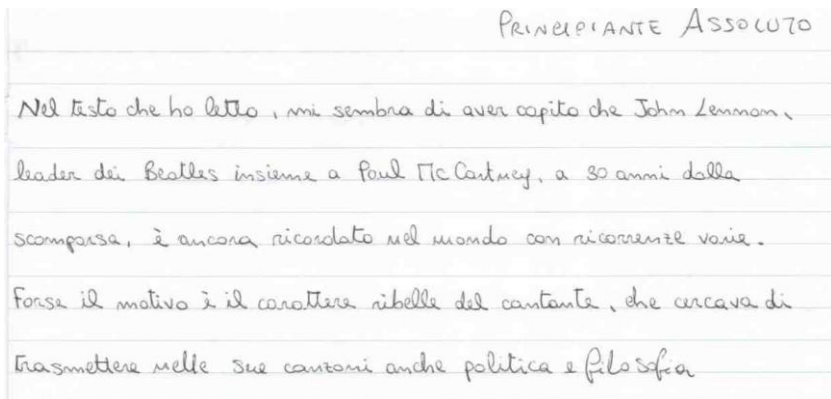 PRINCIPIANTE ASSOLUTO
Nel testo che ho letto, mi sembra di aver capito che John Lennon,
leader dei Beatles insieme a Paul Mc Cartney, a 30 anni dalla
scomparsa, è ancora ricordato nel mondo con ricorrenze varie.
Forse il motivo è il carattere ribelle del cantante, che cercava di
trasmettere nelle sue canzoni anche politica e filosofia